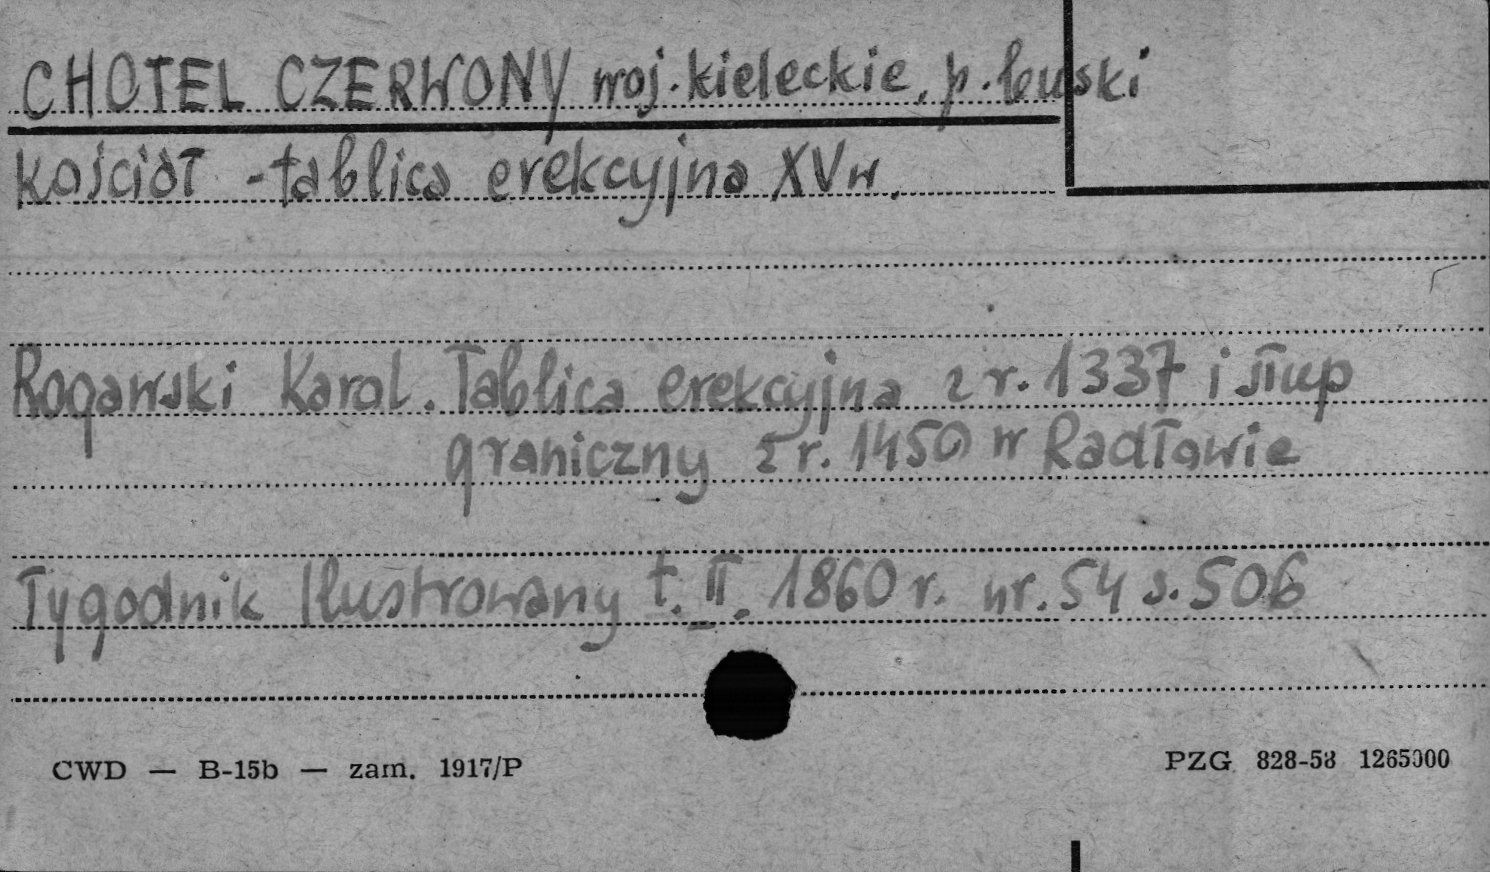 CHOTEL CZERWONY woj. kieleckie, p.
Kościół - tablica erekcyjna XV w.
Rogawski Karol. Tablica erekcyjna z r. 1337 i słup
graniczny z r. 1450 w Radłowie
Tygodnik Ilustrowany t. II. 1860 r. nr. 54 s. 506
CWD — B-15b — zam. 1917/P
PZG 828-58 1265000